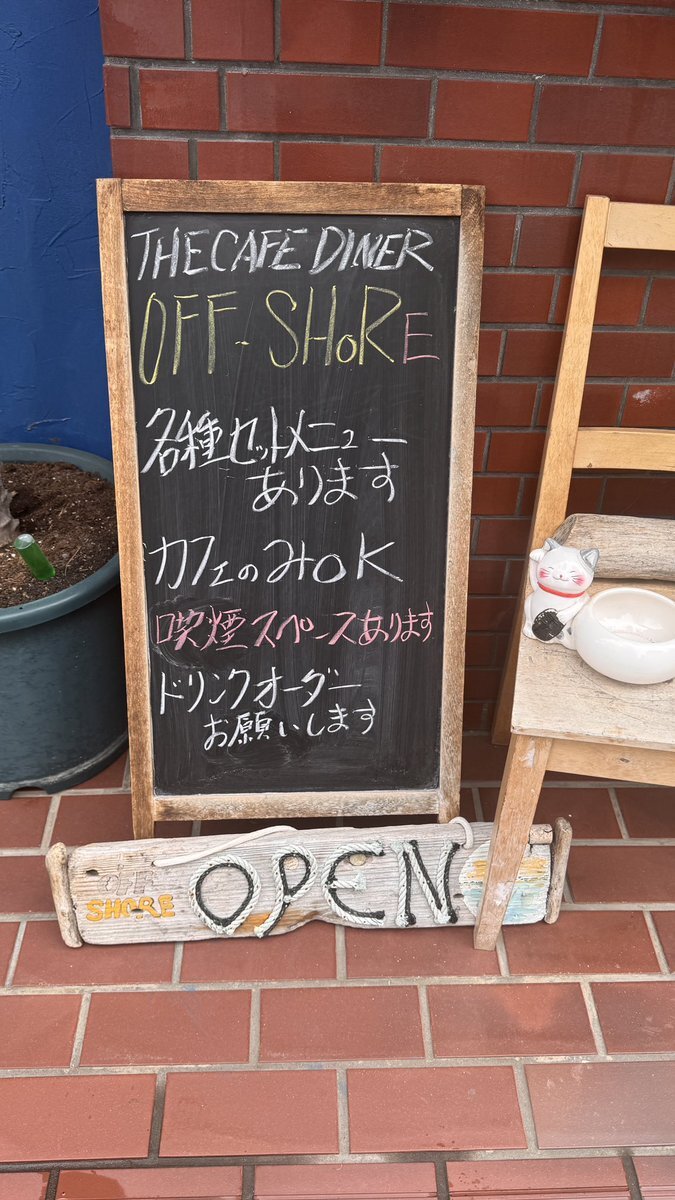 THE CAFE DINER
OFF-SHORE
各種セットメニュー
あります
カフェのみOK
喫煙スペースあります
ドリンクオーダー
お願いします
OFF
SHORE
OPEN